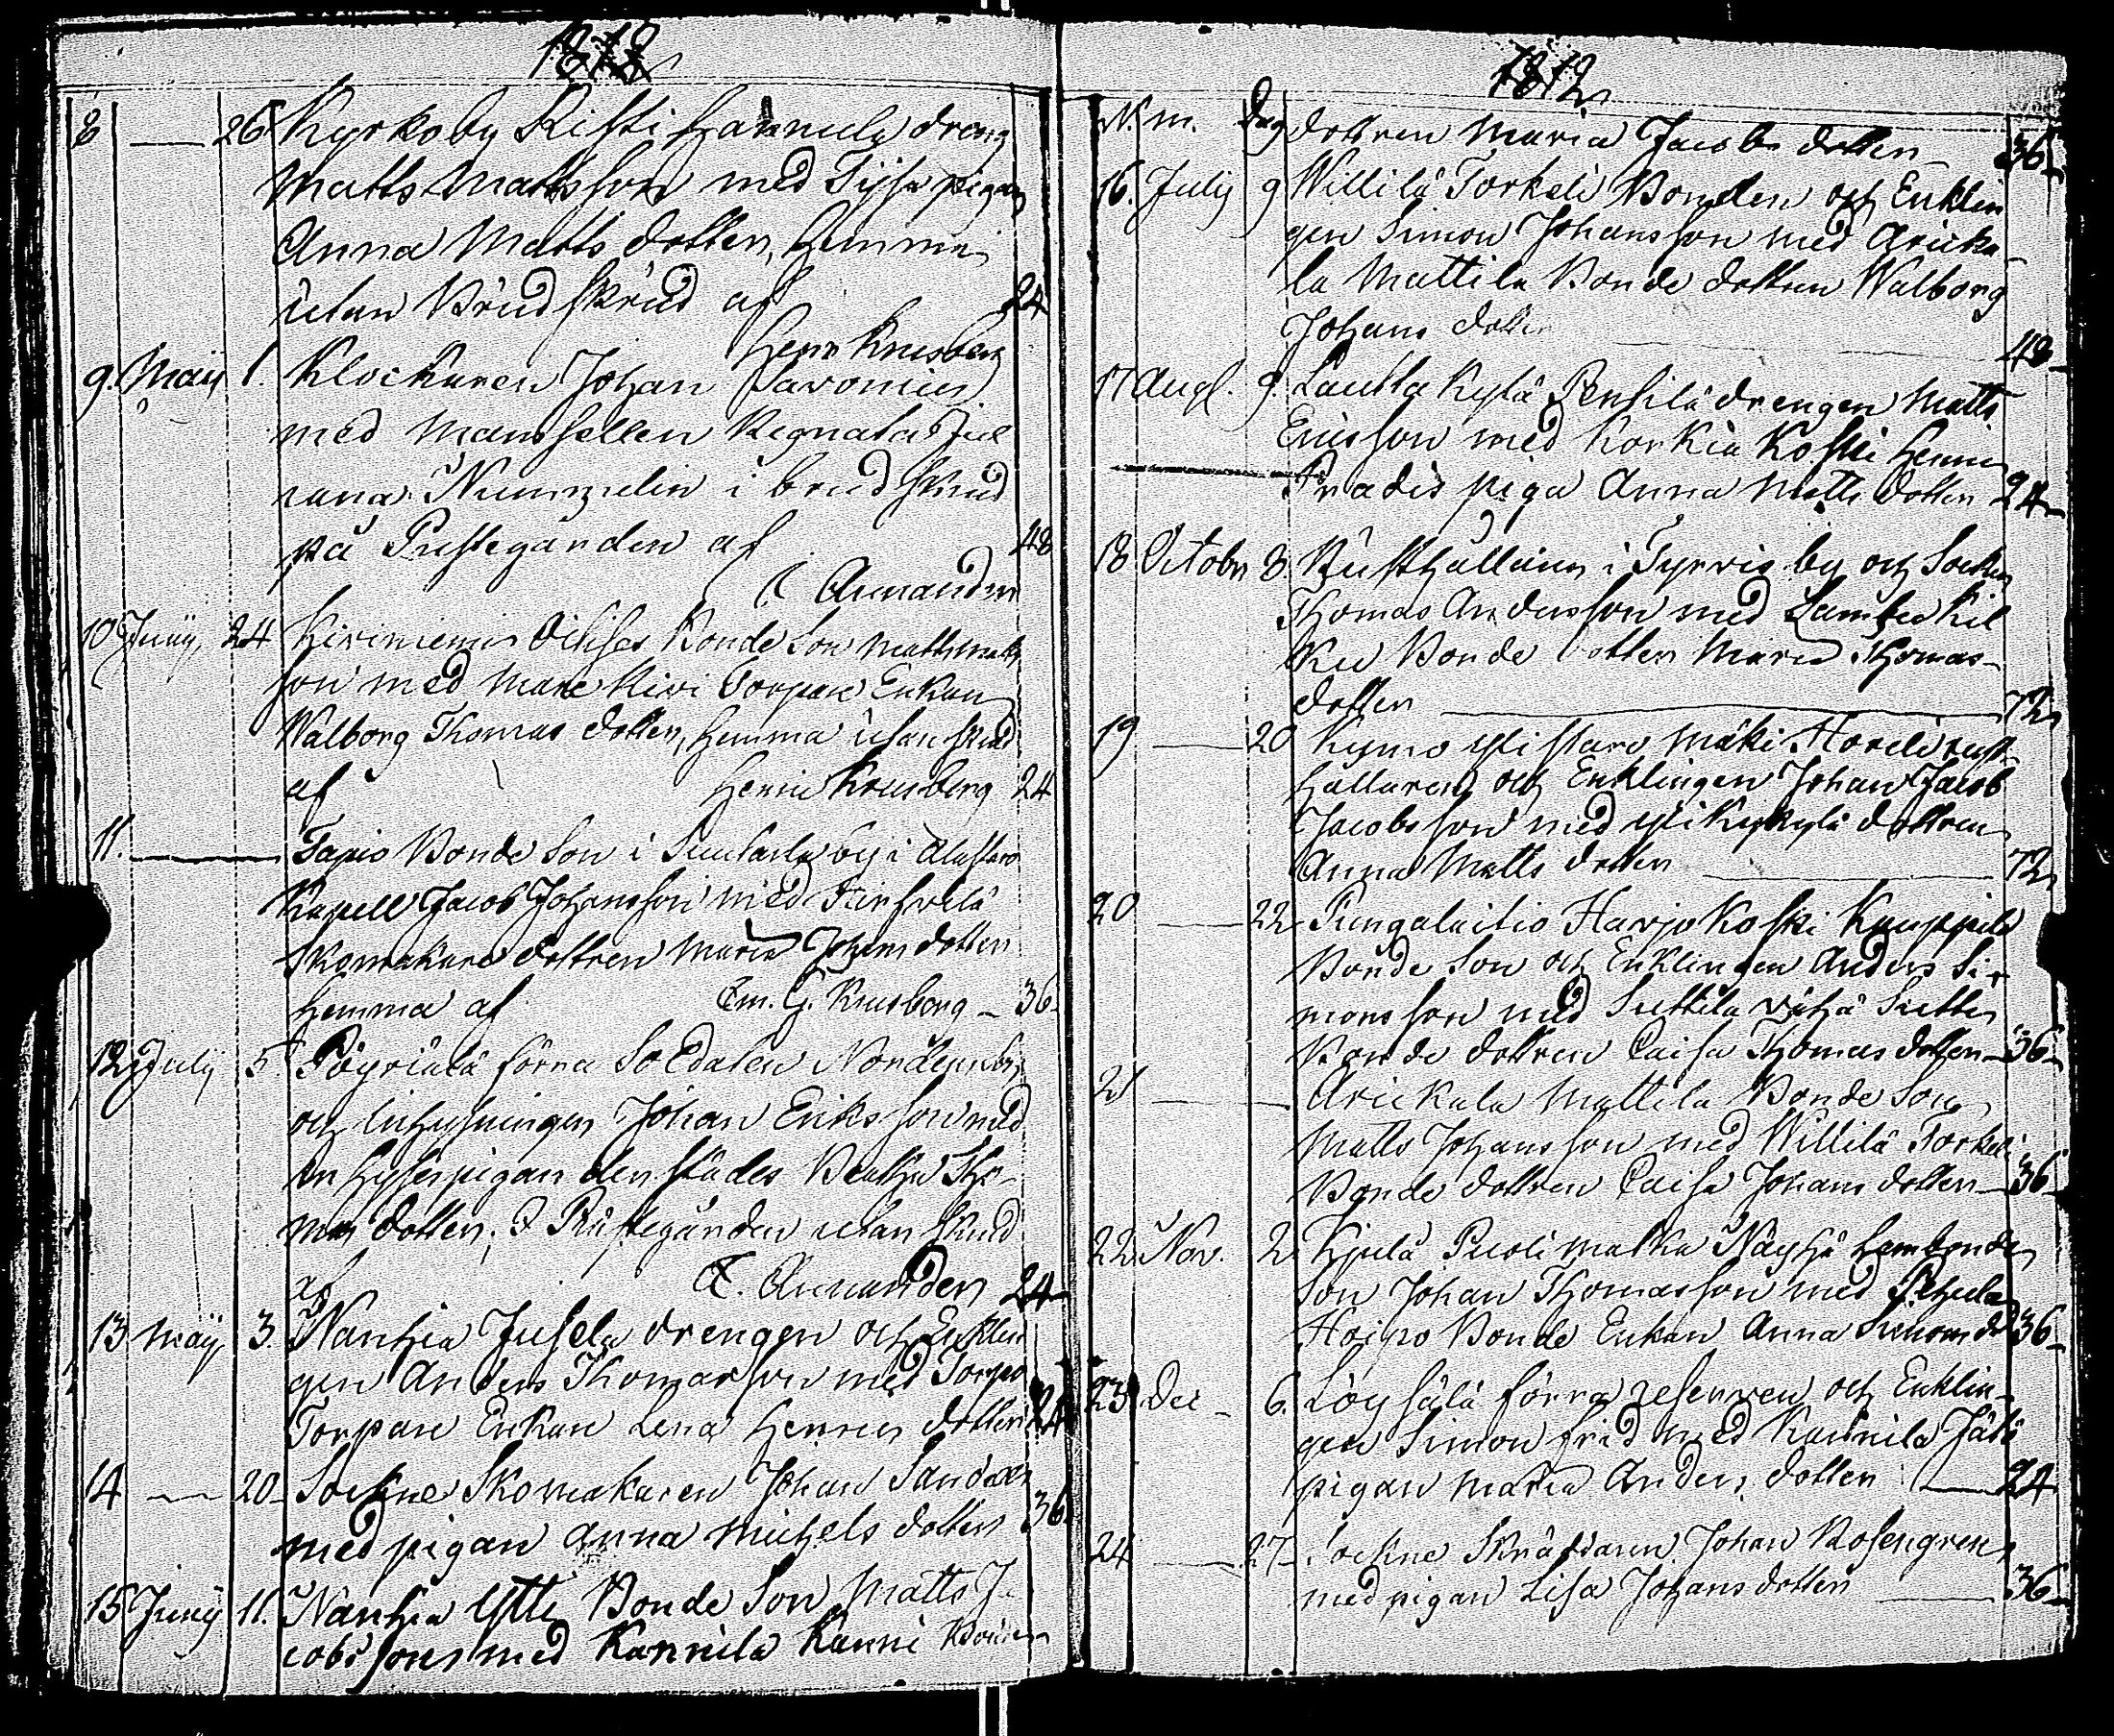 1812
8 — 26 Kyrkoby Kisti Hannula dreng
Matts Mattsson med Sysa pigan
Anna Matts dotter, hemma
utan Brudskrud af 24
Henr Krusberg
9. Maij 1. Klockaren Johan Savonius
med Mamsellen Regnata Jul
iana Nummelin i brudskrud
på Prestegården af 48
C. Amandus
10 Junij, 24 Kiviniemi Bonde Son Matts Matts
son med Kivi Torpare Enkan
Walborg Thomas dotter, hemma utan skrud
af Henric Krusberg 24
11. — Tapio Bonde Son i by i Alastaro
Kapell Jacob Johansson med
Skomakare dottren Maria Johans dotter
hemma af Em. G. Krusberg – 36
12 Julij 5. Pöyriälä förra Soldaten
och Inhysningen Johan Eriksson med
Inhyses pigan der städes Beatha Tho-
mas dotter, I Prästegården utan skrud
af C. Amanden 24
13 Maij 3. Nanhia Jusela drengen och Enklin
gen Anders Thomasson med
Torpare Enkan Lena Henrics dotter 24
14 — 20 Sockne Skomakaren Johan
med pigan Anna Michels dotter 36
15 Junij 11. Nanhia Ytti Bonde Son Matts Ja
cobsson med Kannila Kanni Bonde
1812
N. m. Dag dottren Maria Jacobs dotter 36
16. Julij 9 Willilä Torkeli Bonden och Enklin
gen Simon Johansson med Aricka
la Mattila Bonde dottren Walborg
Johans dotter 48
17 Aug. 9. Lautta Kylä Pentilä drengen Matts
Ericsson med Korkia Koski Henni
Pradis piga Anna Matts dotter 24
18 Octobr 8. Rusthållaren i Tyrvis by och Socken
Thomas Andersson med
Bonde dotter Maria Thomas-
dotter — 72
19 — 20 Kymo Ylistaro Mäki Horeli rust
hållaren och Enklingen Johan Jacob
Jacobsson med Yli Kyskylä dottren
Anna Matts dotter — 72
20 — 22 Pungalaitio Harjo Koski Kauppila
Bonde Son och Enklingen Anders Si-
monsson med Suttila
Bonde dottren Caisa Thomas dotter 36
21 — Arickala Mattila Bonde Son
Matts Johansson med Willilä Torkeli
Bonde dottren Caisa Johans dotter 36
22 Nov. 2. Puolimatka Näyhä
Son Johan Thomasson med Pehula
Hoipo Bonde Enkan Anna Simons d 36
23 Dec – 6. Löysälä förra reserven och Enklin-
gen Simon frid med Kannila
pigan Maria Anders dotter 24
24 — 27 Sockne Skräddaren Johan Rosengren
med pigan Lisa Johans dotter 36